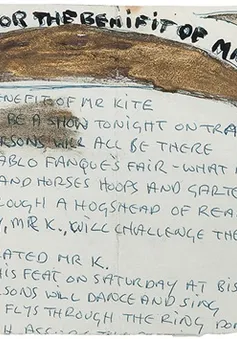 OR THE BENIFIT OF M
ENEFIT OF MR KITE
BE A SHOW TONIGHT ON TRA
RSONS WILL ALL BE THERE
ABLO FANQUE'S FAIR - WHAT A
AND HORSES HOOPS AND GARTE
OUGH A HOGSHEAD OF REA
, MR K., WILL CHALLENGE THE
RATED MR K.
HIS FEAT ON SATURDAY AT BIS
RSONS WILL DANCE AND SING
FLYS THROUGH THE RING DO